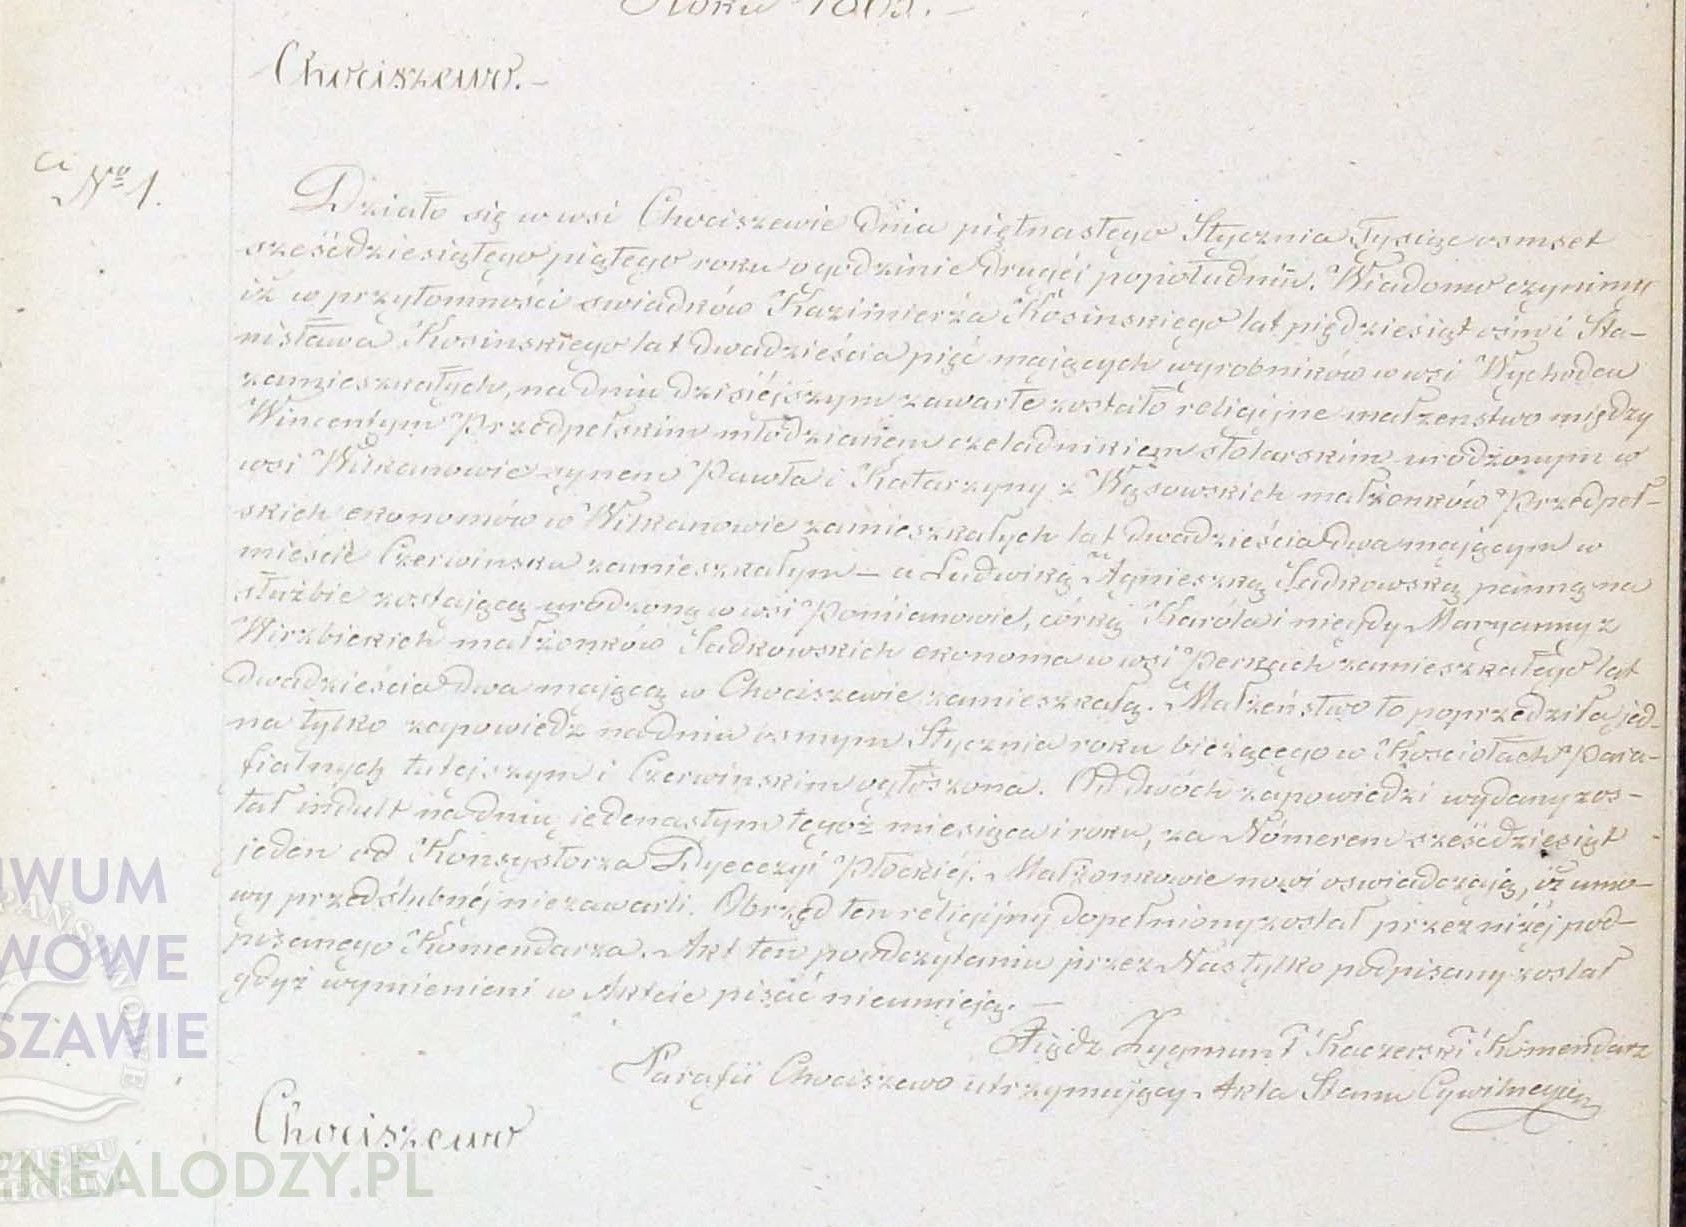 Roku 1865.-
Chociszewo.-
No 1.
Działo się w wsi Chociszewie dnia piętnastego Stycznia Tysiąc osmset
sześćdziesiątego piątego roku o godzinie drugéj popołudniu. Wiadomo czynimy
iż w przytomności swiadków Kazimierza Kosinskiego lat piędziesiąt ośm i Sta-
nisława Kosinskiego lat dwadzieścia pięć mających wyrobników w wsi Wychodcu
zamieszkałych, na dniu dzisiéjszym zawarte zostało religijne małżenstwo między
Wincentym Przedpełskim młodzianem czeladnikiem stolarskim urodzonym w
wsi Wilkanowie synem Pawła i Katarzyny z Wąsowskich małżonków Przedpeł-
skich ekonomów w Wilkanowie zamieszkałych lat dwadzieścia dwa mającym w
mieście Czerwinsku zamieszkałym - a Ludwiką Agnieszką Sadkowską panną na
służbie zostającą urodzoną w wsi Pomianowie, córką Karóla i niegdy Maryanny z
Wirzbickich małżonków Sadkowskich ekonoma w wsi Perkach zamieszkałego lat
dwadzieścia dwa mającą w Chociszewie zamieszkałą. Małżeństwo to poprzedziła jed-
na tylko zapowiedź na dniu osmym Stycznia roku bieżącego w Kosciołach Para-
fialnych tutejszym i Czerwińskim ogłoszona. Od dwóch zapowiedzi wydany zos-
tał indult na dniu jedenastym tegoż miesiąca i roku, za Nómerem sześćdziesiąt
jeden od Konsystorza Dyecezyi Płockiéj. Małżonkowie nowi oswiadczają, iż umo-
wy przedślubnéj niezawarli. Obrzęd ten religijny dopełniony został przez niżéj pod-
pisanego Komendarza. Akt ten po odczytaniu przez Nas tylko podpisany został
gdyż wymienieni w Akcie pisać nieumieją. -
Xiądz Zygmunt Kaczerski Komendarz
Parafii Chociszewo utrzymujący Akta Stanu Cywilnego
Chociszewo
WUM
WOWE
SZAWIE
PAŃSTWOWE
NEALODZY.PL